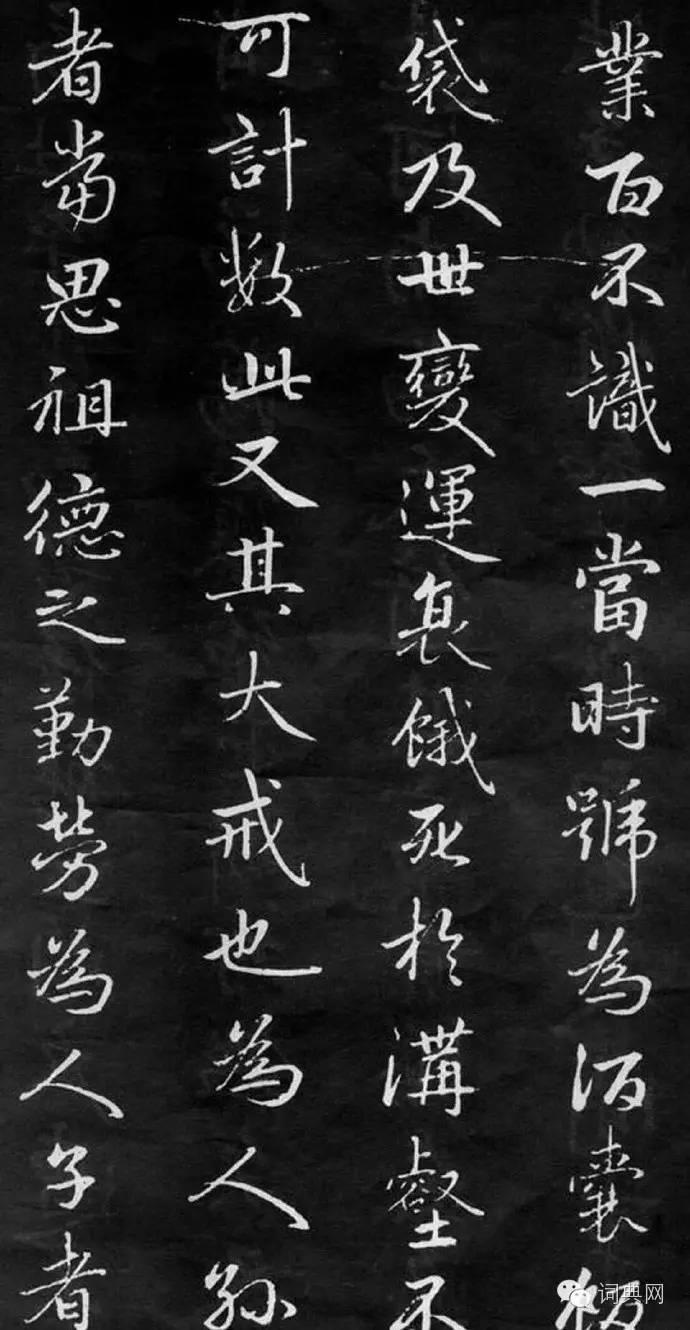 業百不識一當時號為酒囊飯
袋及世變運衰餓死於溝壑不
可計數此又其大戒也為人孫
者當思祖德之勤勞為人子者
词典网